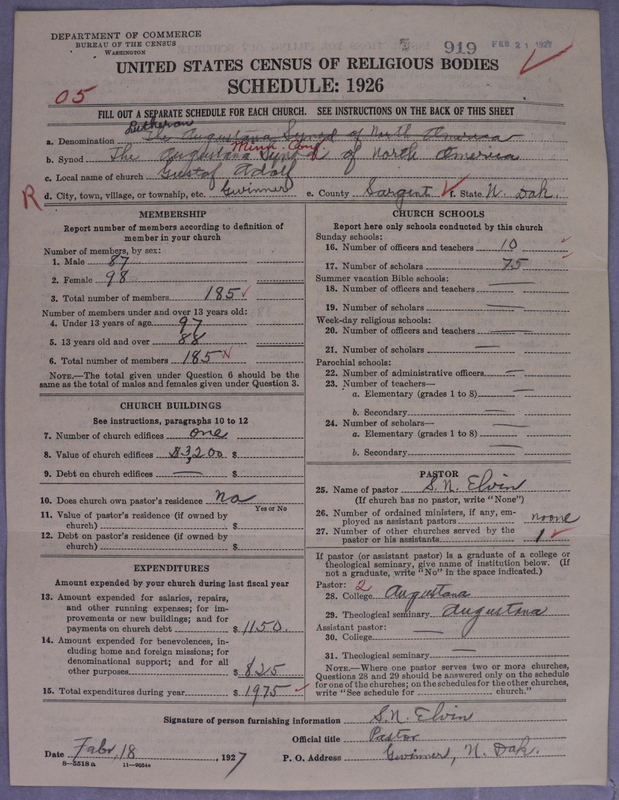 DEPARTMENT OF COMMERCE
BUREAU OF THE CENSUS
WASHINGTON
919 FEB 21 1927
UNITED STATES CENSUS OF RELIGIOUS BODIES
SCHEDULE: 1926
05
FILL OUT A SEPARATE SCHEDULE FOR EACH CHURCH. SEE INSTRUCTIONS ON THE BACK OF THIS SHEET
Lutheran
a. Denomination The Augustana Synod of North America
Minn. Conf.
b. Synod The Augustana Synod of North America
c. Local name of church Gustaf Adolf
R d. City, town, village, or township, etc. Gwinner e. County Sargent f. State N. Dak.
MEMBERSHIP
Report number of members according to definition of member in your church
Number of members, by sex:
1. Male 87
2. Female 98
3. Total number of members 185
Number of members under and over 13 years old:
4. Under 13 years of age 97
5. 13 years old and over 88
6. Total number of members 185
NOTE.—The total given under Question 6 should be
same as the total of males and females given under Question 3.
CHURCH BUILDINGS
See instructions, paragraphs 10 to 12
7. Number of church edifices one
8. Value of church edifices $3,200 $
9. Debt on church edifices — $
10. Does church own pastor's residence No
Yes or No
11. Value of pastor's residence (if owned by
church) $
12. Debt on pastor's residence (if owned by
church) $
EXPENDITURES
Amount expended by your church during last fiscal year
13. Amount expended for salaries, repairs,
and other running expenses; for im-
provements or new buildings; and for
payments on church debt $ 1150.
14. Amount expended for benevolences, in-
cluding home and foreign missions; for
denominational support; and for all
other purposes $ 825
15. Total expenditures during year $ 1975
CHURCH SCHOOLS
Report here only schools conducted by this church
Sunday schools:
16. Number of officers and teachers 10
17. Number of scholars 75
Summer vacation Bible schools:
18. Number of officers and teachers —
19. Number of scholars —
Week-day religious schools:
20. Number of officers and teachers —
21. Number of scholars —
Parochial schools:
22. Number of administrative officers —
23. Number of teachers—
a. Elementary (grades 1 to 8) —
b. Secondary —
24. Number of scholars—
a. Elementary (grades 1 to 8) —
b. Secondary —
PASTOR
25. Name of pastor S. N. Elvin
(If church has no pastor, write "None")
26. Number of ordained ministers, if any, em-
ployed as assistant pastors none
27. Number of other churches served by the
pastor or his assistants 1
If pastor (or assistant pastor) is a graduate of a college or
theological seminary, give name of institution below. (If
not a graduate, write "No" in the space indicated.)
Pastor: 2
28. College Augustana
29. Theological seminary Augustana
Assistant pastor:
30. College —
31. Theological seminary —
NOTE.—Where one pastor serves two or more churches,
Questions 28 and 29 should be answered only on the schedule
for one of the churches; on the schedules for the other churches,
write "See schedule for church."
Signature of person furnishing information S. N. Elvin
Official title Pastor
Date Febr. 18, 1927 P. O. Address Gwinner, N. Dak.
8-5518a 11-9654a